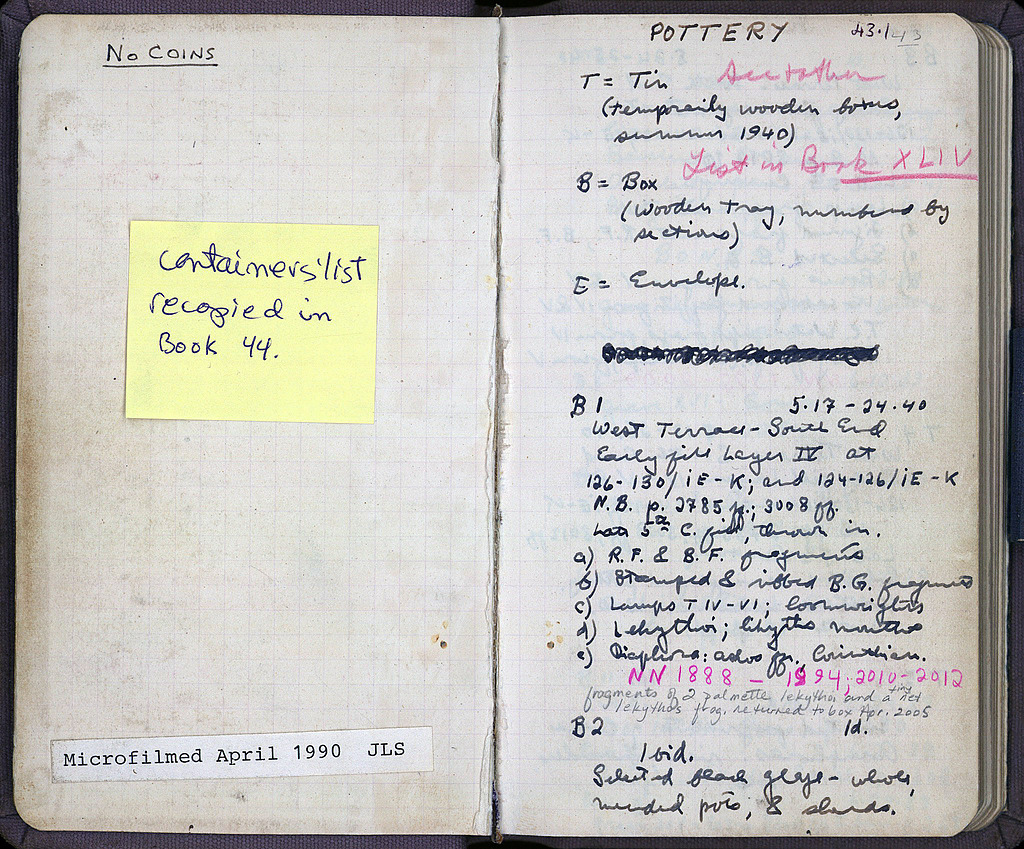 No COINS
containers' list
recopied in
Book 44.
Microfilmed April 1990 JLS
POTTERY
43.1 43
T = Tin
See other
(temporarily wooden boxes,
summer 1940)
List in Book XLIV
B = Box
(Wooden tray, numbers by
sections)
E = Envelope.
B 1 5.17-24.40
West Terrace - South End
Early fill Layer IV at
126-130/iE-K; and 124-126/iE-K
N.B. p. 2785 ff.; 3008 ff.
Late 5th C. fill, thrown in.
a) R.F. & B.F. fragments
b) Stamped & ribbed B.G. fragments
c) Lamps T IV-VI; loomweights
d) Lekythoi; lekythos mouths
e) Diaphora: askos fr., Corinthian.
NN 1888 - 1994; 2010-2012
fragments of 2 palmette lekythoi and a tiny net
lekythos frag. returned to box Apr. 2005
B 2 Id.
Ibid.
Selected black glaze - whole,
mended pots, & sherds.